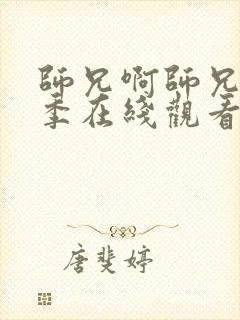 師兄啊師兄
季在綫觀看
唐斐婷